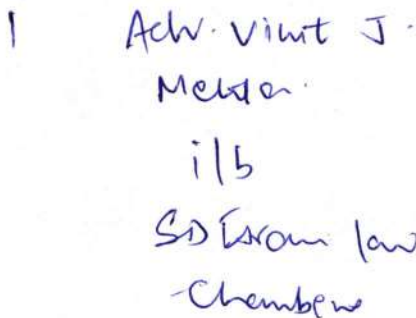 1 Adv. Vinit J.
Mehta.
i/b
SD Israni law
Chambers